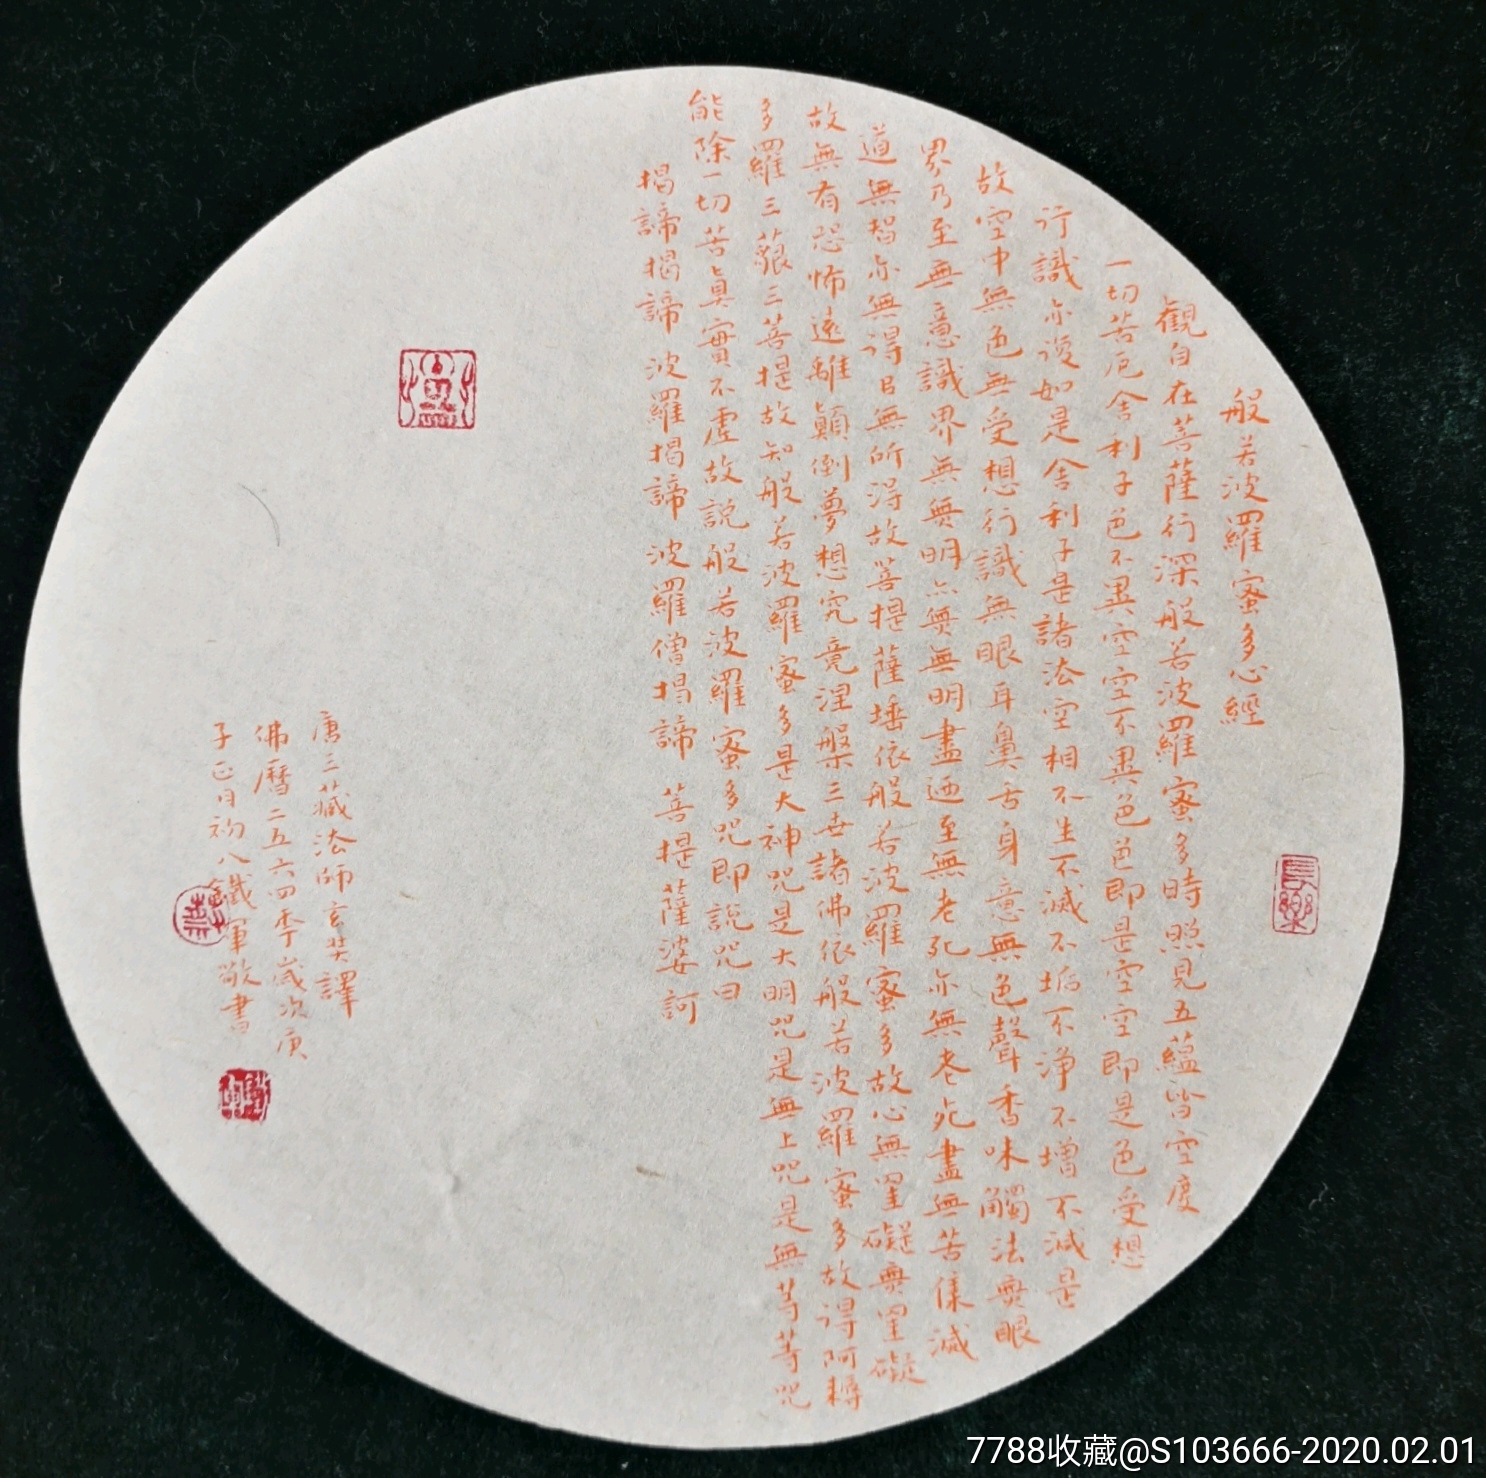 般若波羅蜜多心經
觀自在菩薩行深般若波羅蜜多時照見五蘊皆空度
一切苦厄舍利子色不異空空不異色色即是空空即是色受想
行識亦復如是舍利子是諸法空相不生不滅不垢不淨不增不減是
故空中無色無受想行識無眼耳鼻舌身意無色聲香味觸法無眼
界乃至無意識界無無明亦無無明盡迺至無老死亦無老死盡無苦集滅
道無智亦無得以無所得故菩提薩埵依般若波羅蜜多故心無罣礙無罣礙
故無有恐怖遠離顛倒夢想究竟涅槃三世諸佛依般若波羅蜜多故得阿耨
多羅三藐三菩提故知般若波羅蜜多是大神咒是大明咒是無上咒是無等等咒
能除一切苦真實不虛故說般若波羅蜜多咒即說咒曰
揭諦揭諦 波羅揭諦 波羅僧揭諦 菩提薩婆訶
唐三藏法師玄奘譯
佛曆二五六四季歲次庚
子正月初八鐵軍敬書
長樂
7788收藏@S103666-2020.02.01